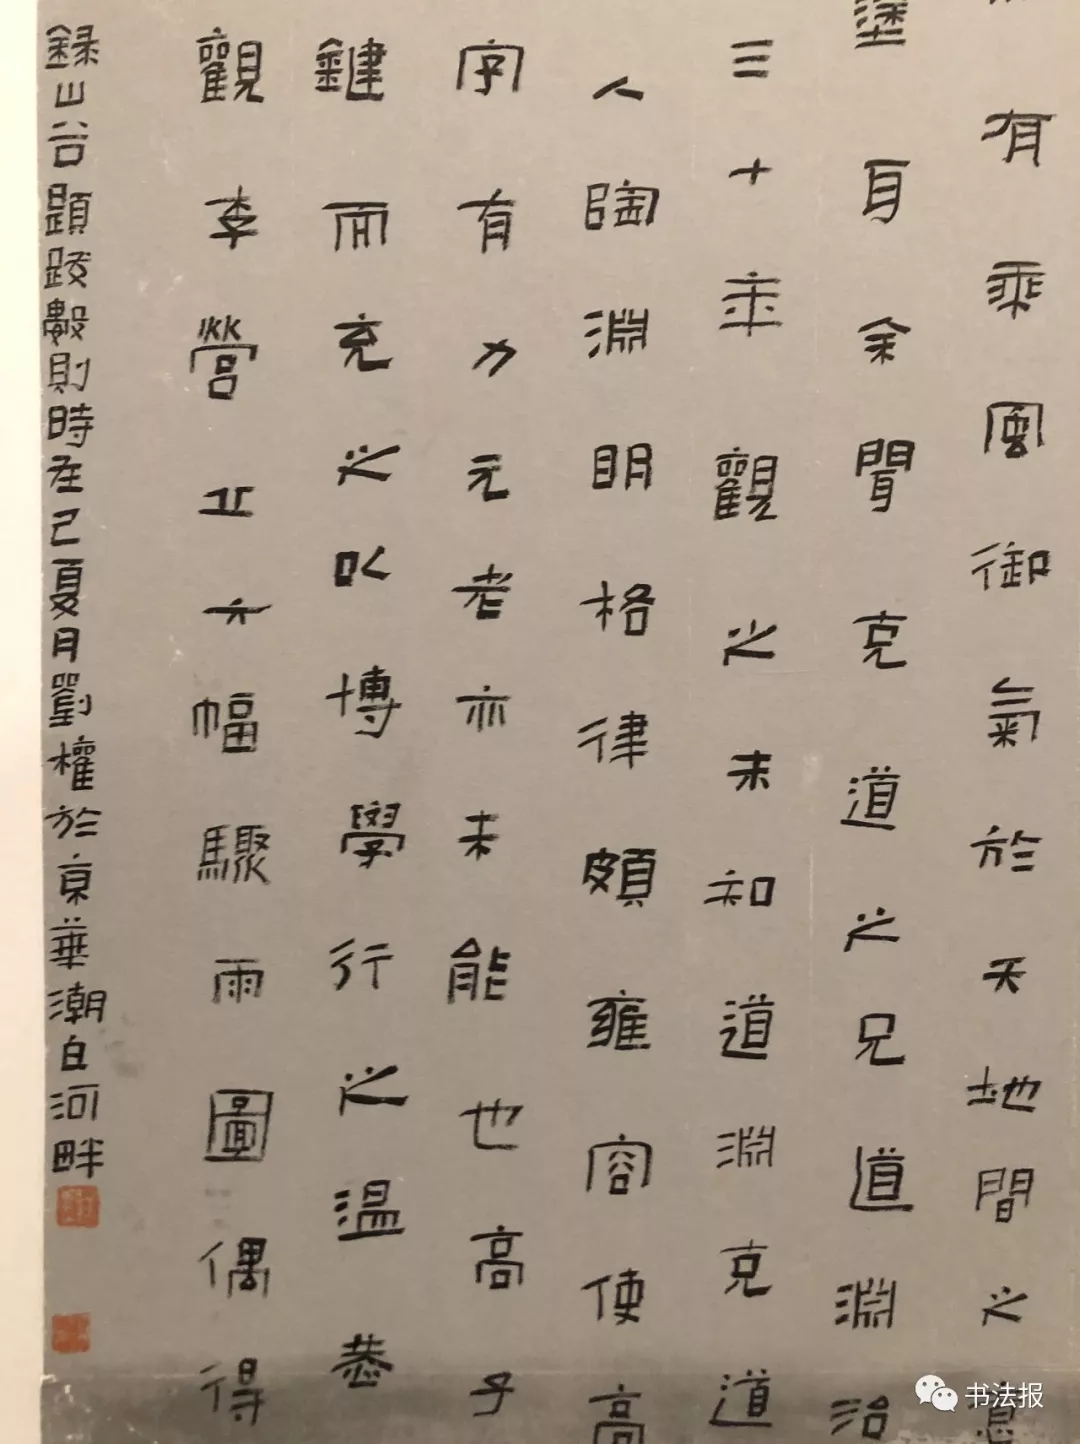 有乘風御氣於天地間之意
塗耳余聞克道之兄道淵治
三十年觀之未知道淵克道
人陶淵明格律頗雍容使高
字有力元老亦未能也高子
鍵而充之以博學行之温恭
觀李營丘六幅驟雨圖偶得
録山谷題跋數則時在己亥夏月劉權於京華潮白河畔
书法报